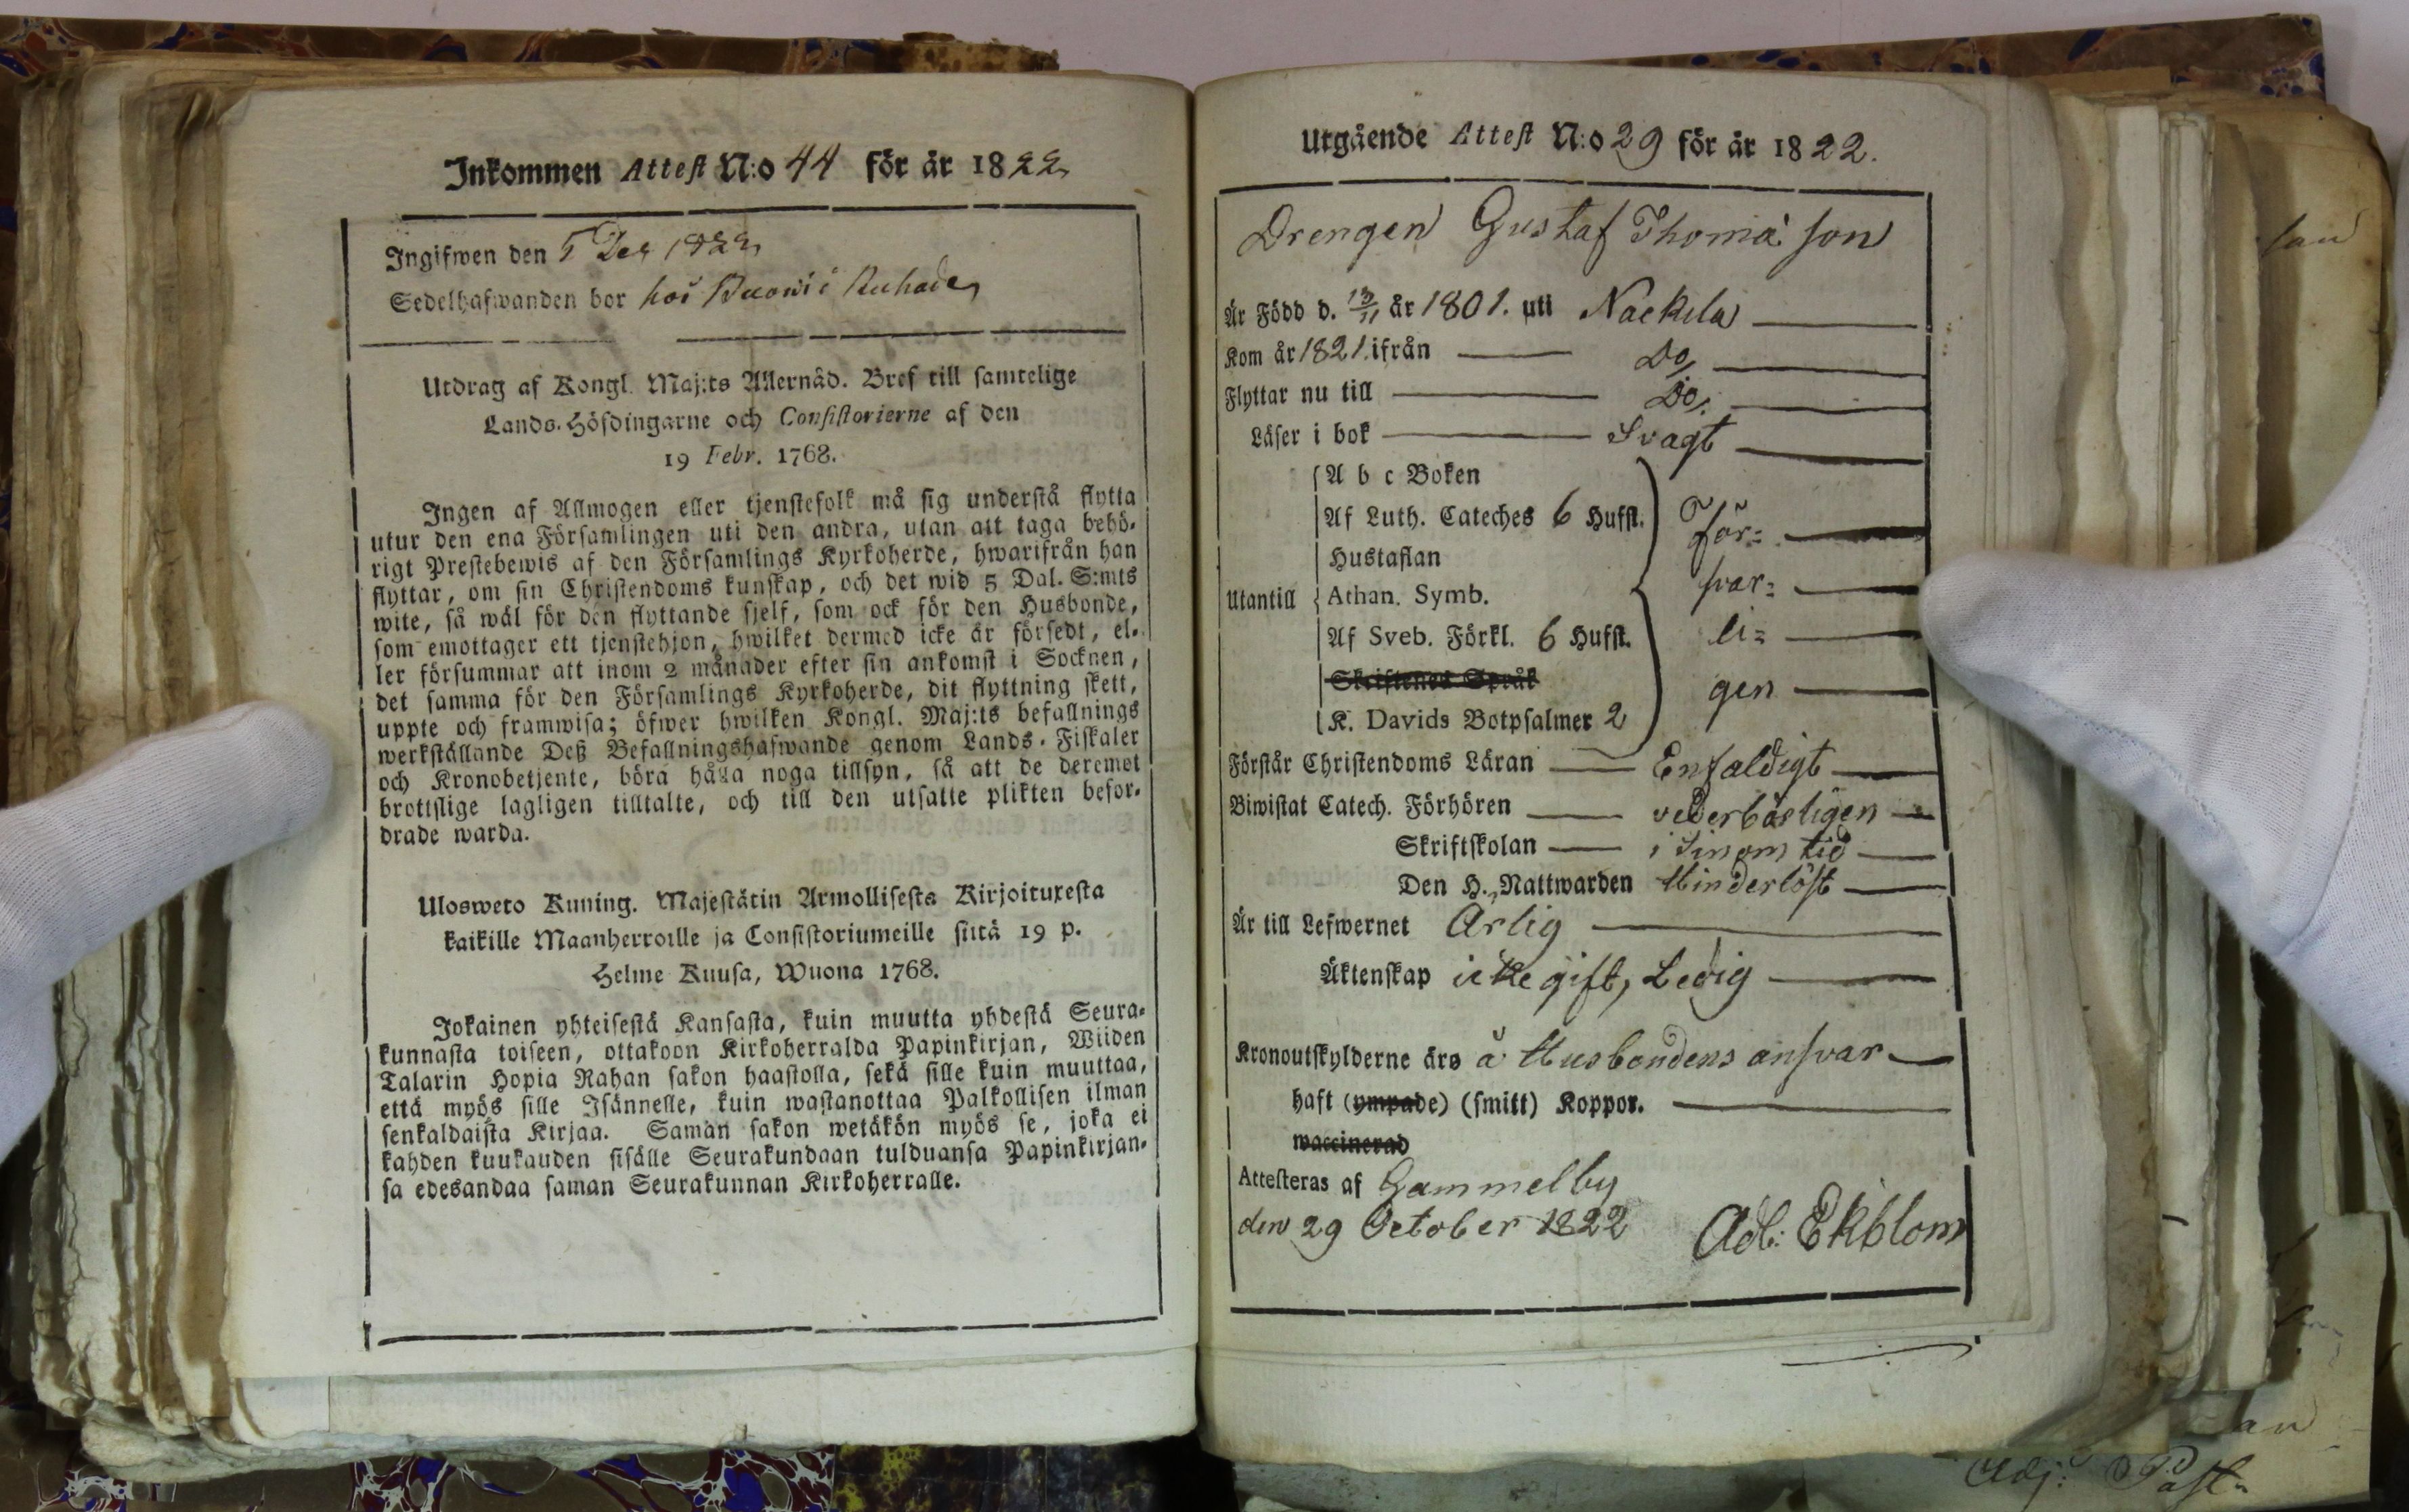 Inkommen Attest N:o 44 för år 1822
Ingifwen den 5 Dec 1822
Sedelhafwanden bor hos
Utdrag af Kongl. Maj:ts Allernåd. Bref till samtelige
Lands-Höfdingarne och Consistorierne af den
19 Febr. 1768.
Ingen af Allmogen eller tjenstefolk må sig understå flytta
utur den ena Församlingen uti den andra, utan att taga behö-
rigt Prestebewis af den Församlings Kyrkoherde, hwarifrån han
flyttar, om sin Christendoms kunskap, och det wid 5 Dal. S:mts
wite, så wäl för den flyttande sjelf, som ock för den Husbonde,
som emottager ett tjenstehjon, hwilket dermed icke är försedt, el-
ler försummar att inom 2 månader efter sin ankomst i Socknen,
det samma för den Församlings Kyrkoherde, dit flyttning skett,
uppte och framwisa; öfwer hwilken Kongl. Maj:ts befallnings
werkställande Deß Befallningshafwande genom Lands-Fiskaler
och Kronobetjente, böra hålla noga tillsyn, så att de deremot
brottslige lagligen tilltalte, och till den utsatte plikten befor-
drade warda.
Ulosweto Kuning. Majestätin Armollisesta Kirjoituxesta
kaikille Maanherroille ja Consistoriumeille siitä 19 p.
Helme Kuusa, Wuona 1768.
Jokainen yhteisestä Kansasta, kuin muutta yhdestä Seura-
kunnasta toiseen, ottakoon Kirkoherralda Papinkirjan, Wiiden
Talarin Hopia Rahan sakon haastolla, sekä sille kuin muuttaa,
että myös sille Isännelle, kuin wastanottaa Palkollisen ilman
senkaldaista Kirjaa. Saman sakon wetäkön myös se, joka ei
kahden kuukauden sisälle Seurakundaan tulduansa Papinkirjan-
sa edesandaa saman Seurakunnan Kirkoherralle.
Utgående Attest N:o 29 för år 1822.
Drengen Gustaf Thomasson
Är Född d. 13/11 år 1801. uti Nackila
Kom år 1821. ifrån Do.
Flyttar nu till Do.
Läser i bok Svagt
A b c Boken
Af Luth. Cateches 6 Hufst. För=
Hustaflan
Utantill Athan. Symb. svar=
Af Sveb. Förkl. 6 Hufst. li=
Skriftenes Språk gen
K. Davids Botpsalmer 2
Förstår Christendoms Läran Enfaldigt
Biwistat Catech. Förhören vederbörligen
Skriftskolan i Sinom tid
Den H. Nattwarden Hinderlöst
Är till Lefwernet Ärlig
Äktenskap icke gift, Ledig
Kronoutskylderne äro å Husbondens ansvar
haft (ympade) (smitt) Koppor.
waccinerad
Attesteras af Gammelby
den 29 October 1822 Adl: Ekblom
Adj: Past=